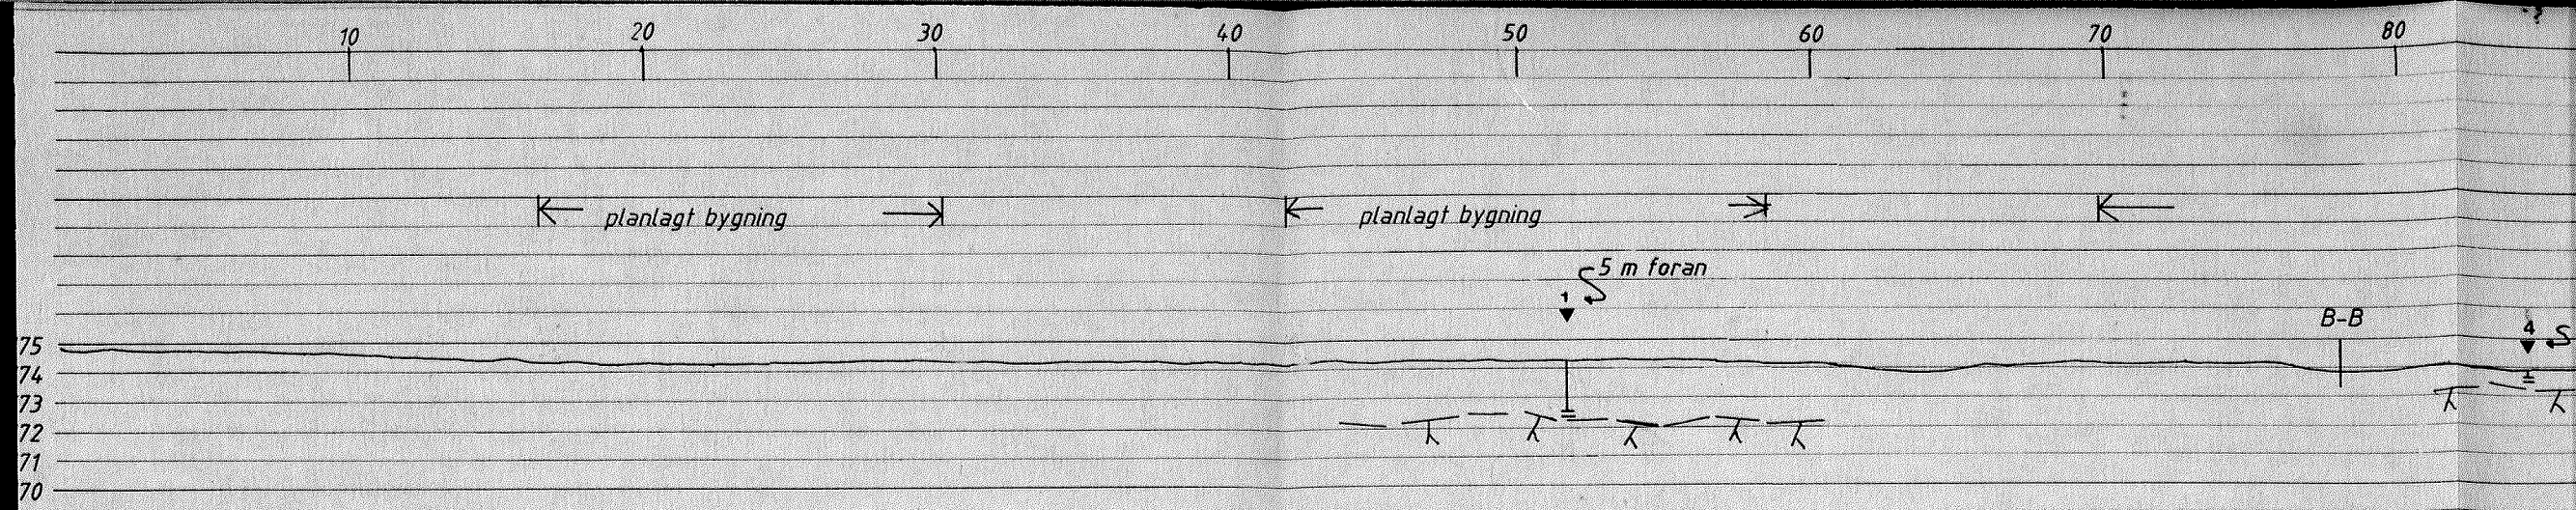 10 20 30 40 50 60 70 80
planlagt bygning planlagt bygning
5 m foran
1
B-B
4
75
74
73
72
71
70